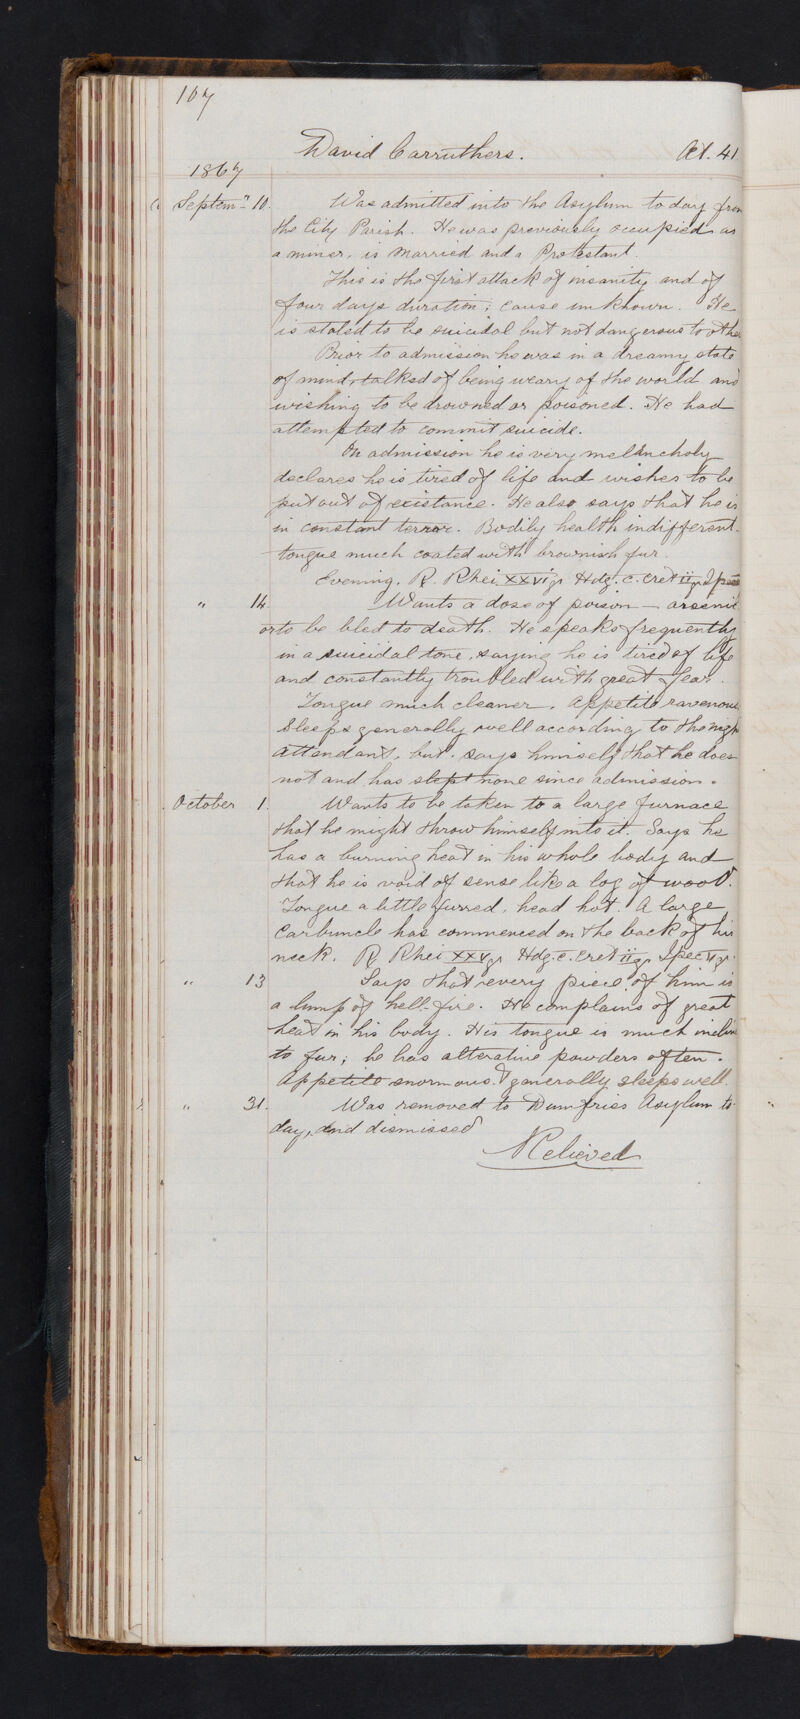 107
David Carruthers. Aet. 41
1867
Septemr 10. Was admitted into the Asylum to day from
the City Parish. He was previously occupied as
a miner, is married and a Protestant.
This is the first attack of insanity and of
four days duration; cause unknown. He
is stated to be suicidal but not dangerous to othe
Prior to admission he was in a dreamy state
of mind, talked of being weary of the world and
wishing to be drowned or poisoned. He had
attempted to commit suicide.
On admission he is very melancholy
declares he is tired of life and wishes to be
put out of existance. He also says that he is
in constant terror. Bodily health indifferent.
tongue much coated with brownish fur.
Evening. R. Rhei xxvi gr Hdg. c. cret ii gr
" 14. Wants a dose of poison — arsenic
or to be bled to death. He speaks frequently
in a suicidal tone, saying he is tired of life
and constantly troubled with great fear.
Tongue much cleaner. Appetite ravenous
Sleeps generally well according to the nigh
attendant, but, says himself that he does
not and has slept none since admission.
October 1. Wants to be taken to a large furnace
that he might throw himself into it. Says he
has a burning heat in his whole body and
that he is void of sense like a log of wood.
Tongue a little furred, head hot. A large
Carbuncle has commenced on the back of his
neck. R Rhei xxv gr Hdg. c. cret ii gr
" 13 Says that every piece of him is
a lump of hell-fire. He complains of great
heat in his body. His tongue is much
to fur; he has alterative powders often.
Appetite enormous. & generally sleeps well.
" 31. Was removed to Dumfries Asylum to
day, and dismissed
Relieved